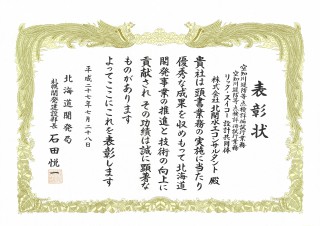 表彰状
空知川堤防等点検評価試行業務
空知川堤防等点検評価試行業務
リック・スイコー設計共同体
株式会社北開水工コンサルタント 殿
貴社は頭書業務の実施に当たり
優秀な成果を収めもって北海道
開発事業の推進と技術の向上に
貢献されその功績は誠に顕著な
ものがあります
よってここにこれを表彰します
平成二十七年七月二十八日
北海道開発局
札幌開発建設部長 石田悦一